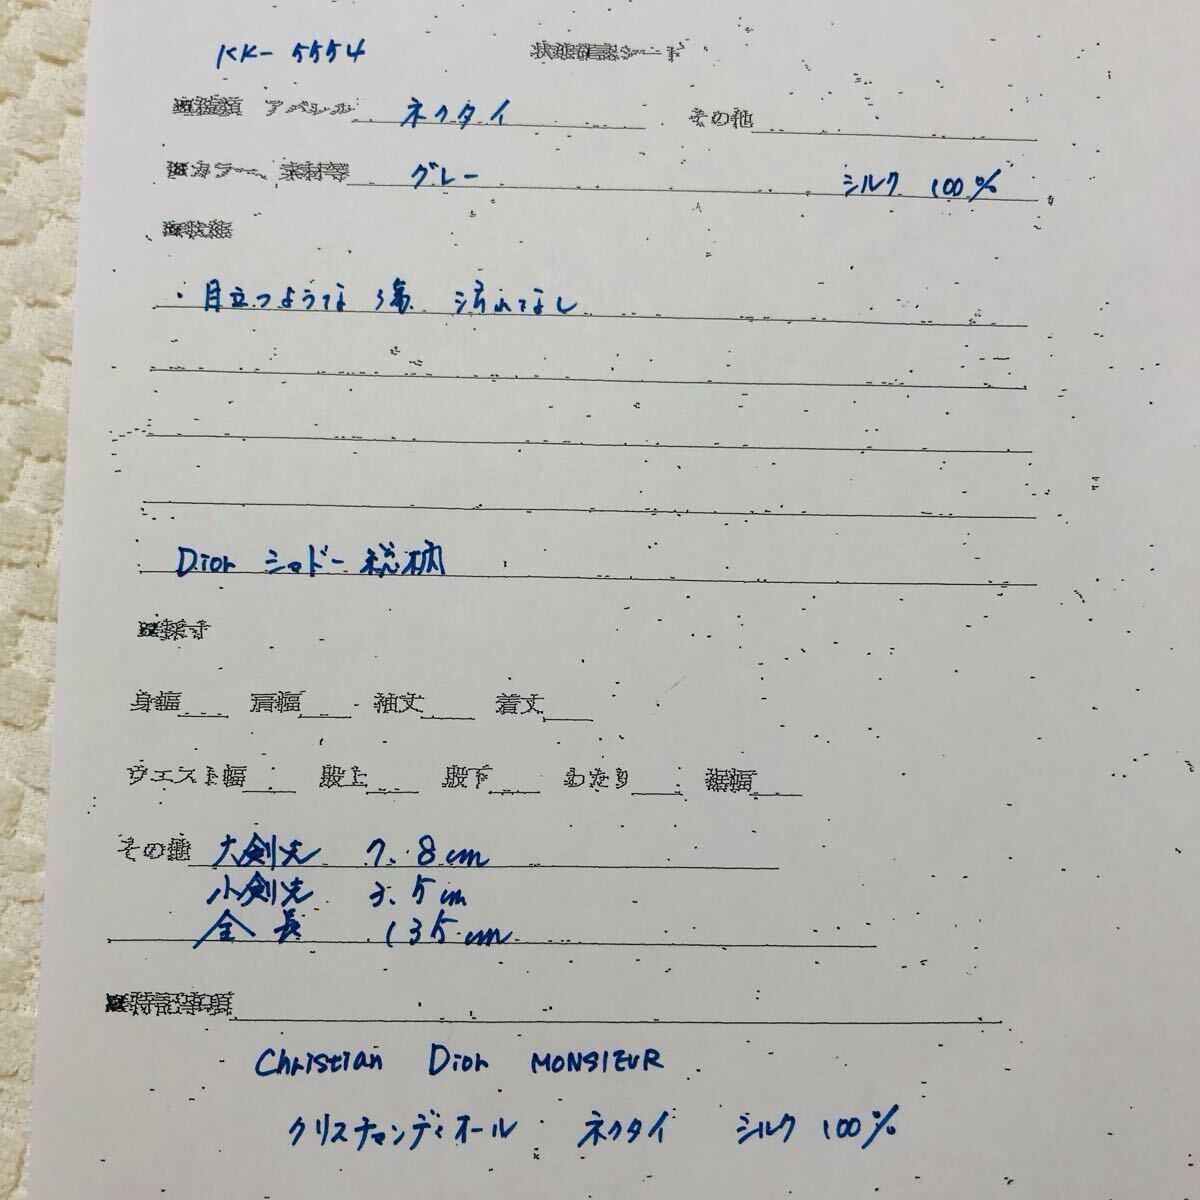 KK- 5554 状態確認シート
■種類 アパレル ネクタイ その他
■カラー、素材等 グレー シルク 100%
■状態
・目立つような 傷 汚れてなし
Dior シャドー 総柄
■採寸
身幅 肩幅 袖丈 着丈
ウエスト幅 股上 股下 わたり 裾幅
その他 大剣先 7.8cm
小剣先 3.5cm
全長 135cm
■特記事項
Christian Dior MONSIEUR
クリスチャンディオール ネクタイ シルク 100%